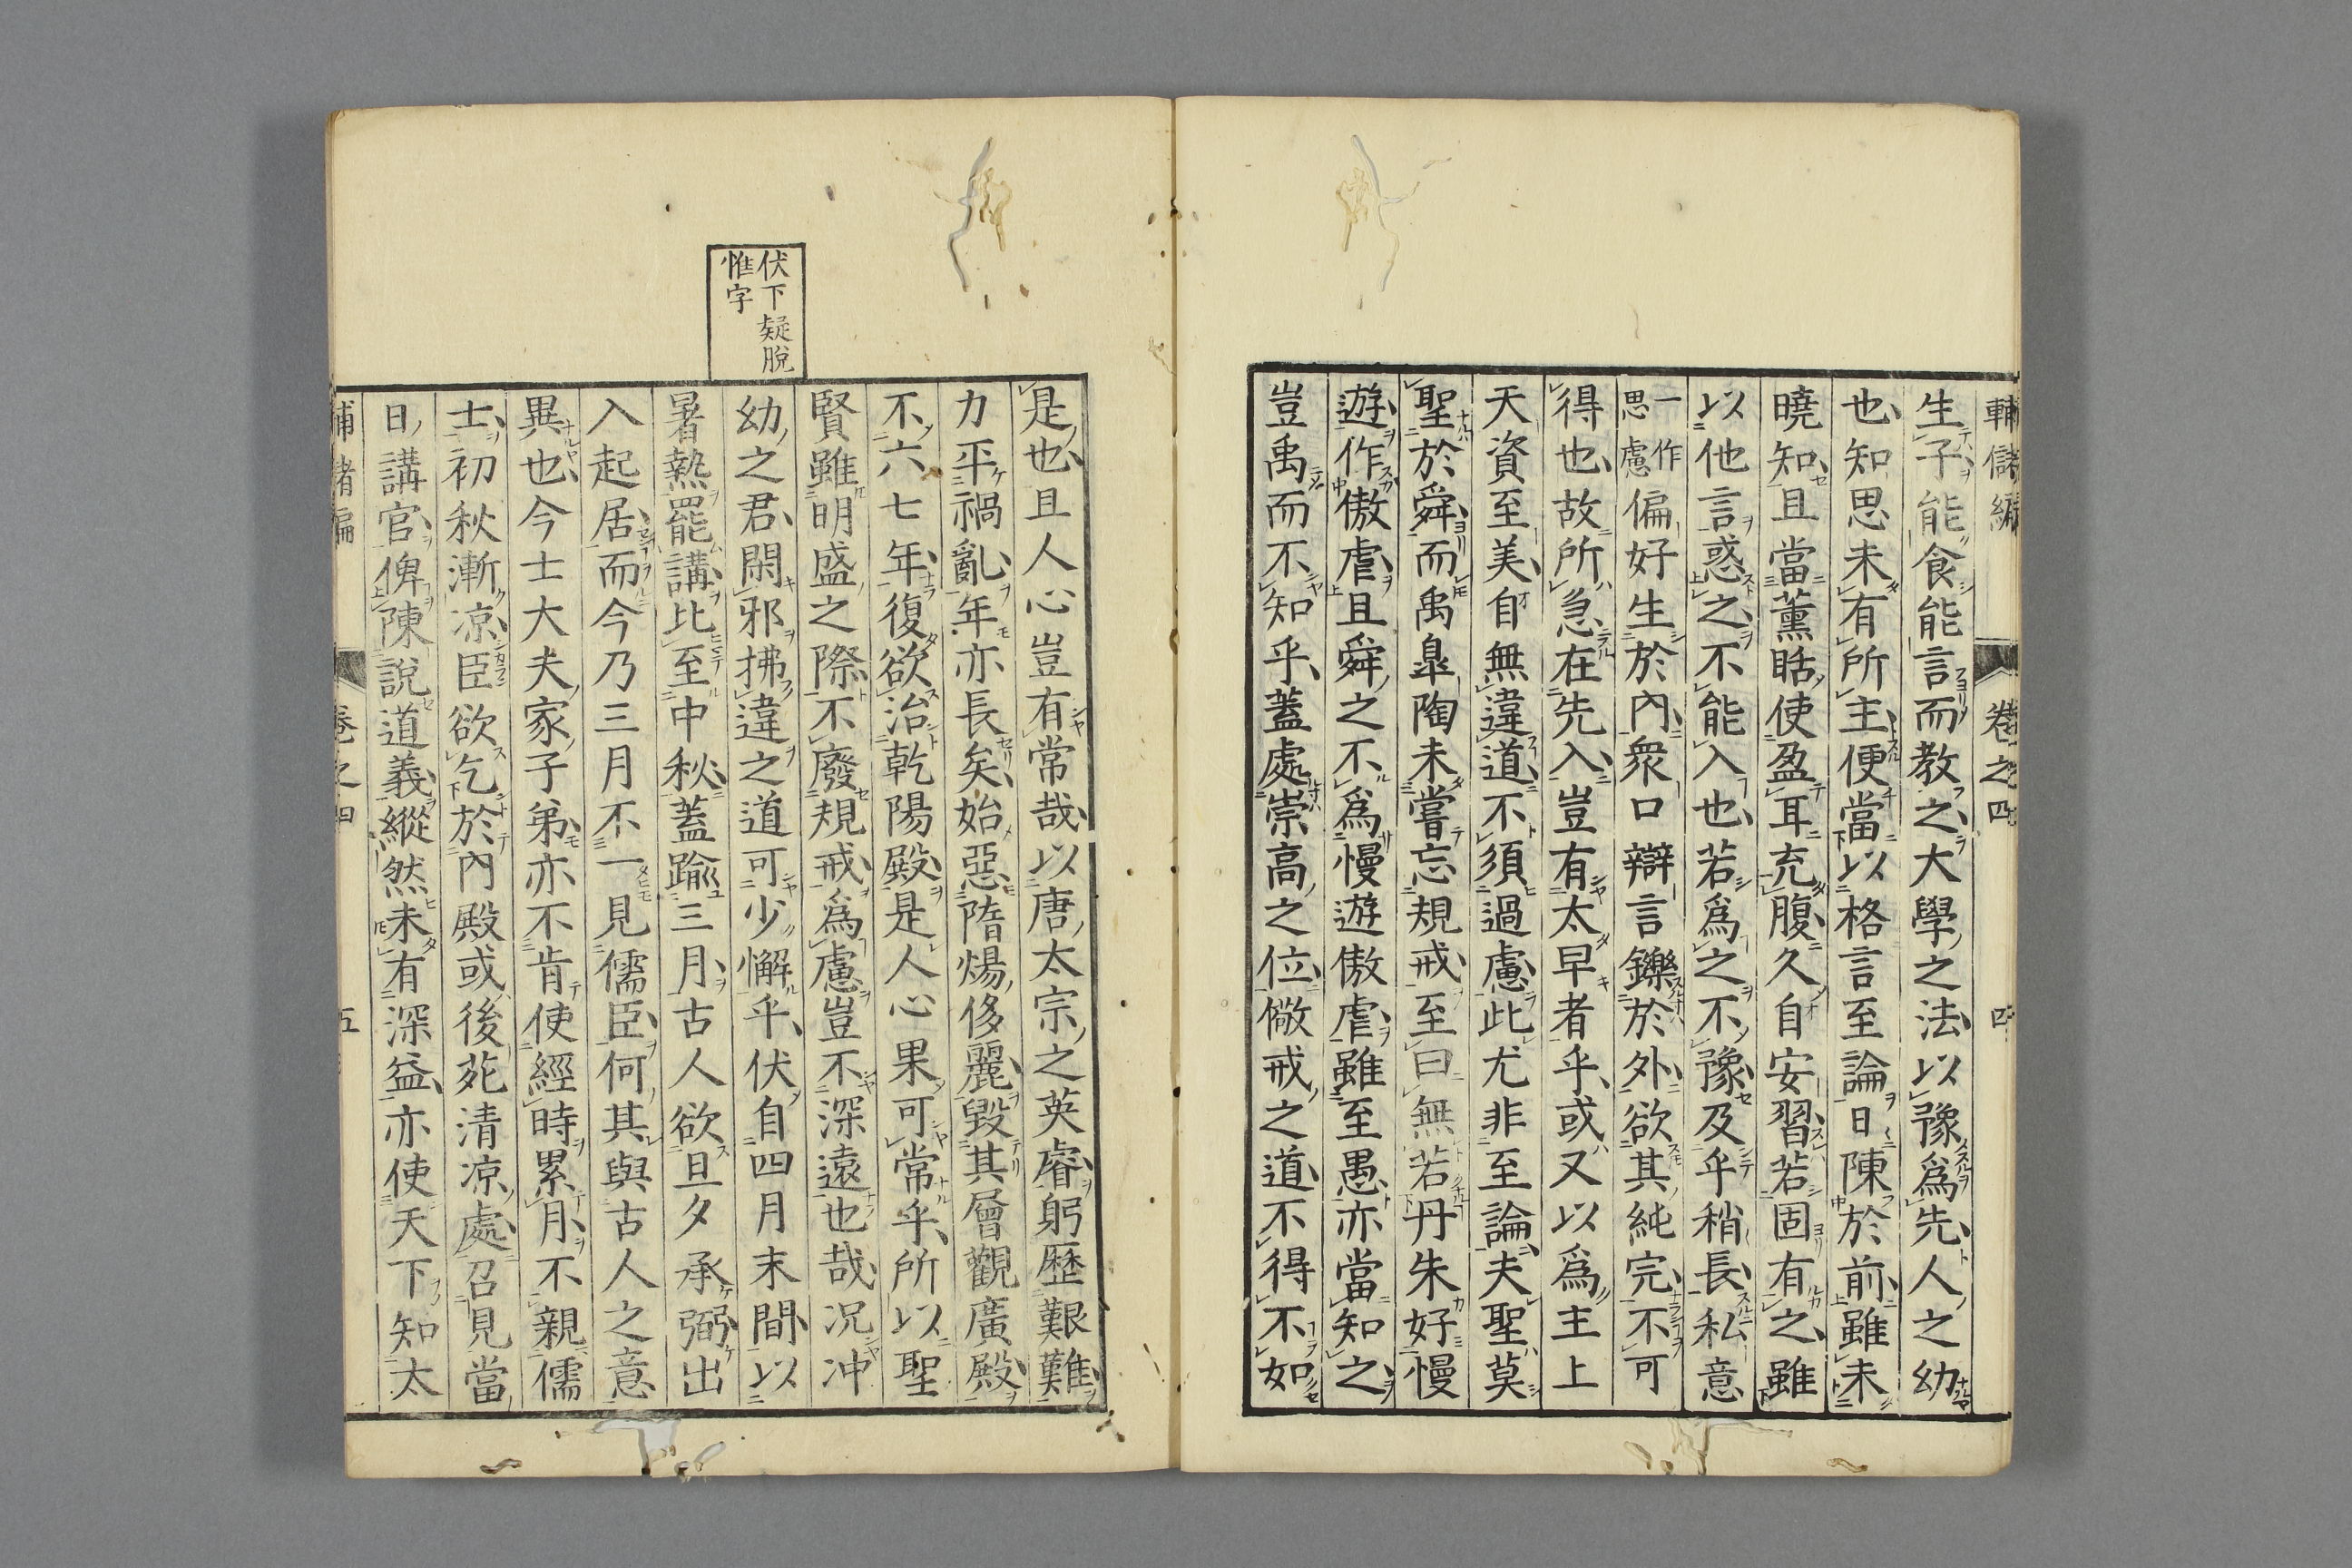 輔儲編 卷之四 四
生子能食能言而教之大學之法以豫爲先人之幼
也知思未有所主便當以格言至論日陳於前雖未
曉知且當薰聒使盈耳充腹久自安習若固有之雖
以他言惑之不能入也若爲之不豫及乎稍長私意
一作思慮偏好生於內衆口辯言鑠於外欲其純完不可
得也故所急在先入豈有太早者乎或又以爲主上
天資至美自無違道不須過慮此尤非至論夫聖莫
聖於舜而禹皐陶未嘗忘規戒至曰無若丹朱好慢
遊作傲虐且舜之不爲慢遊傲虐雖至愚亦當知之
豈禹而不知乎蓋處崇高之位儆戒之道不得不如
伏下疑脫
惟字
是也且人心豈有常哉以唐太宗之英睿躬歷艱難
力平禍亂年亦長矣始惡隋煬侈麗毀其層觀廣殿
不六七年復欲治乾陽殿是人心果可常乎所以聖
賢雖明盛之際不廢規戒爲慮豈不深遠也哉況冲
幼之君閑邪拂違之道可少懈乎伏自四月末間以
暑熱罷講比至中秋蓋踰三月古人欲旦夕承弼出
入起居而今乃三月不一見儒臣何其與古人之意
異也今士大夫家子弟亦不肯使經時累月不親儒
士初秋漸凉臣欲乞於內殿或後苑清凉處召見當
日講官俾陳說道義縱然未有深益亦使天下知太
輔儲編 卷之四 五